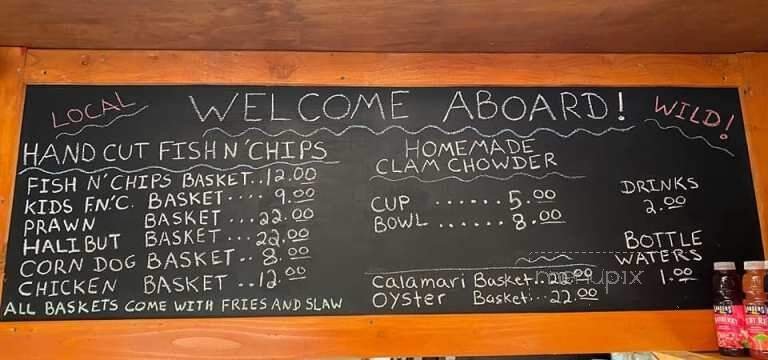 LOCAL
WELCOME ABOARD!
WILD!
HAND CUT FISH N' CHIPS
FISH N' CHIPS BASKET..12.00
KIDS F.N.'C. BASKET....9.00
PRAWN BASKET...22.00
HALIBUT BASKET...22.00
CORN DOG BASKET..8.00
CHICKEN BASKET..12.00
ALL BASKETS COME WITH FRIES AND SLAW
HOMEMADE
CLAM CHOWDER
CUP ......5.00
BOWL ......8.00
Calamari Basket..
OYSTER Basket...22.00
DRINKS
2.00
BOTTLE
WATERS
1.00
menupix